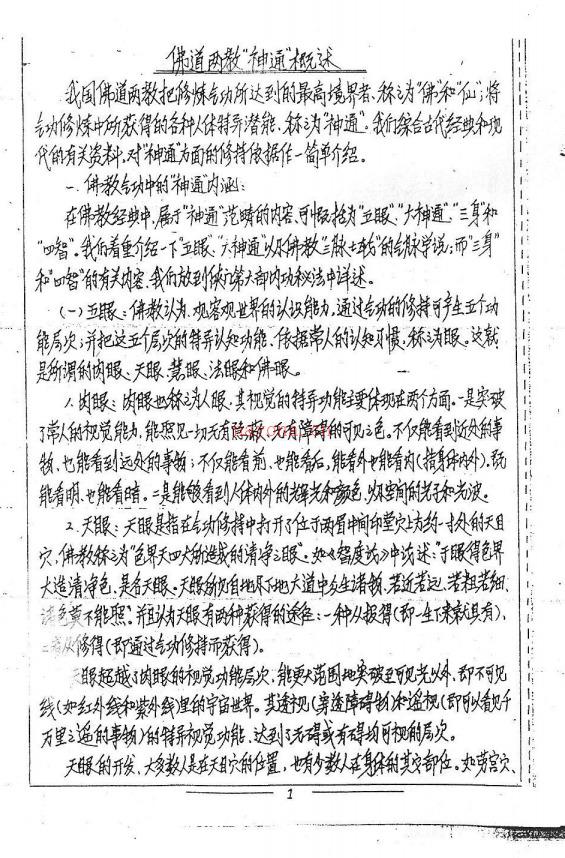 佛道两教"神通"概述
我国佛道两教把修炼气功所达到的最高境界者、称之为"佛"和"仙"；将
气功修炼中所获得的各种人体特异潜能、称之为"神通"。我们综合古代经典和现
代的有关资料、对"神通"方面的修持依据作一简单介绍。
一、佛教气功中的"神通"内涵：
在佛教经典中、属于"神通"范畴的内容、可概括为"五眼"、"六神通"、"三身"和
"四智"。我们着重介绍一下"五眼"、"六神通"以及佛教"三脉七轮"的气脉学说；而"三身"
和"四智"的有关内容、我们放到第六部内功秘法中详述。
(一)五眼：佛教认为、观客观世界的认识能力、通过气功的修持可产生五个功
能层次；并把这五个层次的特异认知功能、依据常人的认知习惯、称之为眼。这就
是所谓的肉眼、天眼、慧眼、法眼和佛眼。
1. 肉眼：肉眼也称之为人眼、其视觉的特异功能主要体现在两个方面。一是突破
了常人的视觉能力、能照见一切无有遮蔽、无有障碍的可见之色。不仅能看到近处的事
物、也能看到远处的事物；不仅能看前、也能看后、能看外也能看内(指身体内外)、既
能看明、也能看暗。二是能够看到人体内外的辉光和颜色、以及空间的光子和光波。
2. 天眼：天眼是指在气功修持中打开了位于两眉中间印堂穴上方约一寸处的天目
穴、佛教称之为"色界天四大所造成的清净之眼"。如《智度论》中说述："于眼得色界
大造清净色、是名天眼。天眼所见自地及下地六道中众生诸物、若近若远、若粗若细、
诸色莫不能照"。并且认为天眼有两种获得的途径：一种从报得(即一生下来就具有)、
二者从修得(即通过气功修持而获得)。
天眼超越了肉眼的视觉功能层次、能更大范围地突破至可见光以外、即不可见
线(如红外线和紫外线)里的宇宙世界。其透视(穿透障碍物)和遥视(即可以看见千
万里之遥的事物)的特异视觉功能、达到了无碍或有碍均可视的层次。
天眼的开发、大多数人是在天目穴的位置、也有少数人在身体的其它部位。如劳宫穴、
1